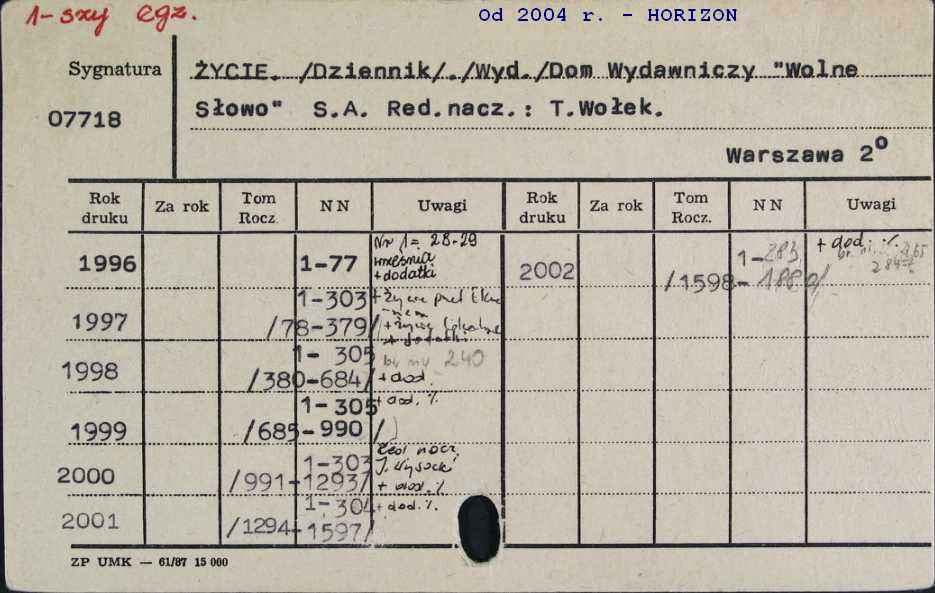 1-szy egz.
Od 2004 r. - HORIZON
Sygnatura
07718
ŻYCIE. /Dziennik/./Wyd./Dom Wydawniczy "Wolne
Słowo" S.A. Red.nacz.: T.Wołek.
Warszawa 2°
Rok druku Za rok Tom Rocz. NN Uwagi Rok druku Za rok Tom Rocz. NN Uwagi
Nr 1 = 28-29
1996 1-77 września
+ dodatki
2002 1-283 + dod. %
/1598-1880/
1997 1-303 + Życie
/78-379/ + Życie
+ dodatki
1998 1-305 br nr 240
/380-684/ + dod.
1999 1-305 + dod. %
/685-990/
2000 1-303 J. Wysocki
/991-1293/ + dod. %
2001 1-304 + dod. %
/1294-1597/
ZP UMK — 61/87 15 000